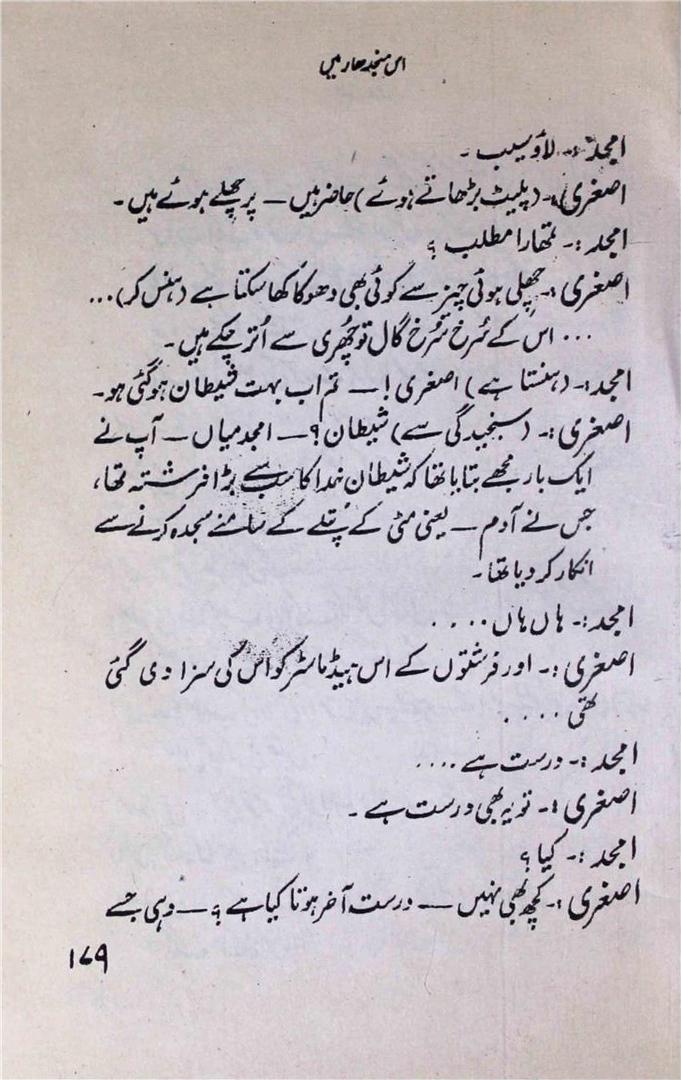 اس منجدھار میں
امجد:۔ لاؤ سیب ۔
اصغری:۔ (پلیٹ بڑھاتے ہوئے) حاضر ہیں — پر چھلے ہوئے ہیں۔
امجد:۔ تمھارا مطلب ؟
اصغری:۔ چھلی ہوئی چیز سے کوئی بھی دھوکا کھا سکتا ہے (ہنس کر)...
... اس کے سُرخ سُرخ گال تو چھُری سے اُتر چکے ہیں۔
امجد:۔ (ہنستا ہے) اصغری! — تم اب بہت شیطان ہو گئی ہو۔
اصغری:۔ (سنجیدگی سے) شیطان؟ — امجد میاں — آپ نے
ایک بار مجھے بتایا تھا کہ شیطان خدا کا سب سے بڑا فرشتہ تھا،
جس نے آدم — یعنی مٹی کے پتلے کے سامنے سجدہ کرنے سے
انکار کر دیا تھا۔
امجد:۔ ہاں ہاں....
اصغری:۔ اور فرشتوں کے اس ہیڈ ماسٹر کو اس کی سزا دی گئی
تھی....
امجد:۔ درست ہے ....
اصغری:۔ تو یہ بھی درست ہے ۔
امجد:۔ کیا ؟
اصغری:۔ کچھ بھی نہیں — درست آخر ہوتا کیا ہے ؟ — وہی جسے
۱۷۹